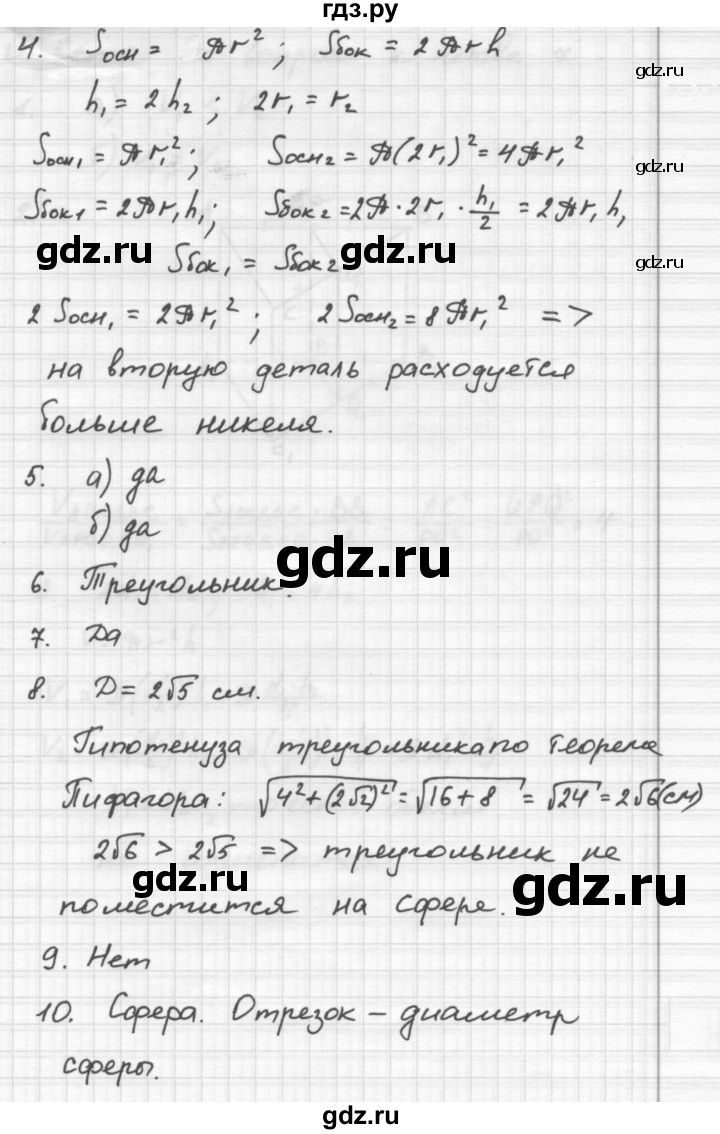 гдз.ру
4. Sосн = πr²; Sбок = 2πrh
gdz.ru
h₁ = 2h₂; 2r₁ = r₂
Sосн₁ = πr₁²; Sосн₂ = π(2r₁)² = 4πr₁²
gdz.ru
Sбок1 = 2πr₁h₁; Sбок₂ = 2π · 2r₁ · h₁/2 = 2πr₁h₁
gdz.ru gdz.ru gdz.ru
Sбок₁ = Sбок2
2 Sосн₁ = 2πr₁²; 2Sосн₂ = 8πr₁² =>
на вторую деталь расходуется
больше никеля.
5. а) да
б) да
gdz.ru
6. Треугольник.
7. Да
8. D = 2√5 см.
Гипотенуза треугольника по теореме
Пифагора: √4²+(2√2)² = √16+8 = √24 = 2√6(см)
2√6 > 2√5 => треугольник не
gdz.ru gdz.ru
поместится на сфере.
9. Нет
10. Сфера. Отрезок – диаметр
сферы.
gdz.ru